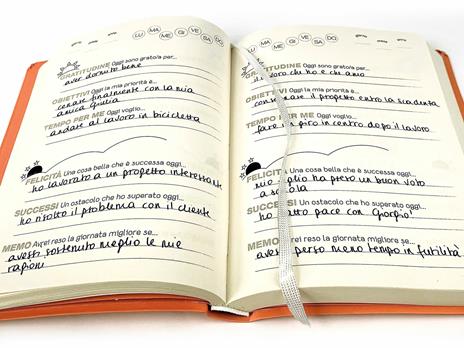 LU MA ME GI VE SA DO
GRATITUDINE Oggi sono grato/a per...
aver dormito bene
OBIETTIVI Oggi la mia priorità è...
cenare finalmente con la mia
amica Giulia
TEMPO PER ME Oggi voglio...
andare al lavoro in bicicletta
FELICITÀ Una cosa bella che è successa oggi...
ho lavorato a un progetto interessante
SUCCESSI Un ostacolo che ho superato oggi...
ho risolto il problema con il cliente
MEMO Avrei reso la giornata migliore se...
avessi sostenuto meglio le mie
ragioni
LU MA ME GI VE SA DO
GRATITUDINE Oggi sono grato/a per...
il lavoro chi ho e chi amo
OBIETTIVI Oggi la mia priorità è...
il progetto entro la scadenza
TEMPO PER ME Oggi voglio...
fare un giro in centro dopo il lavoro
FELICITÀ Una cosa bella che è successa oggi...
mio figlio ha preso un buon voto
a scuola
SUCCESSI Un ostacolo che ho superato oggi...
ho fatto pace con Giorgio
MEMO Avrei reso la giornata migliore se...
avessi perso meno tempo in futilità